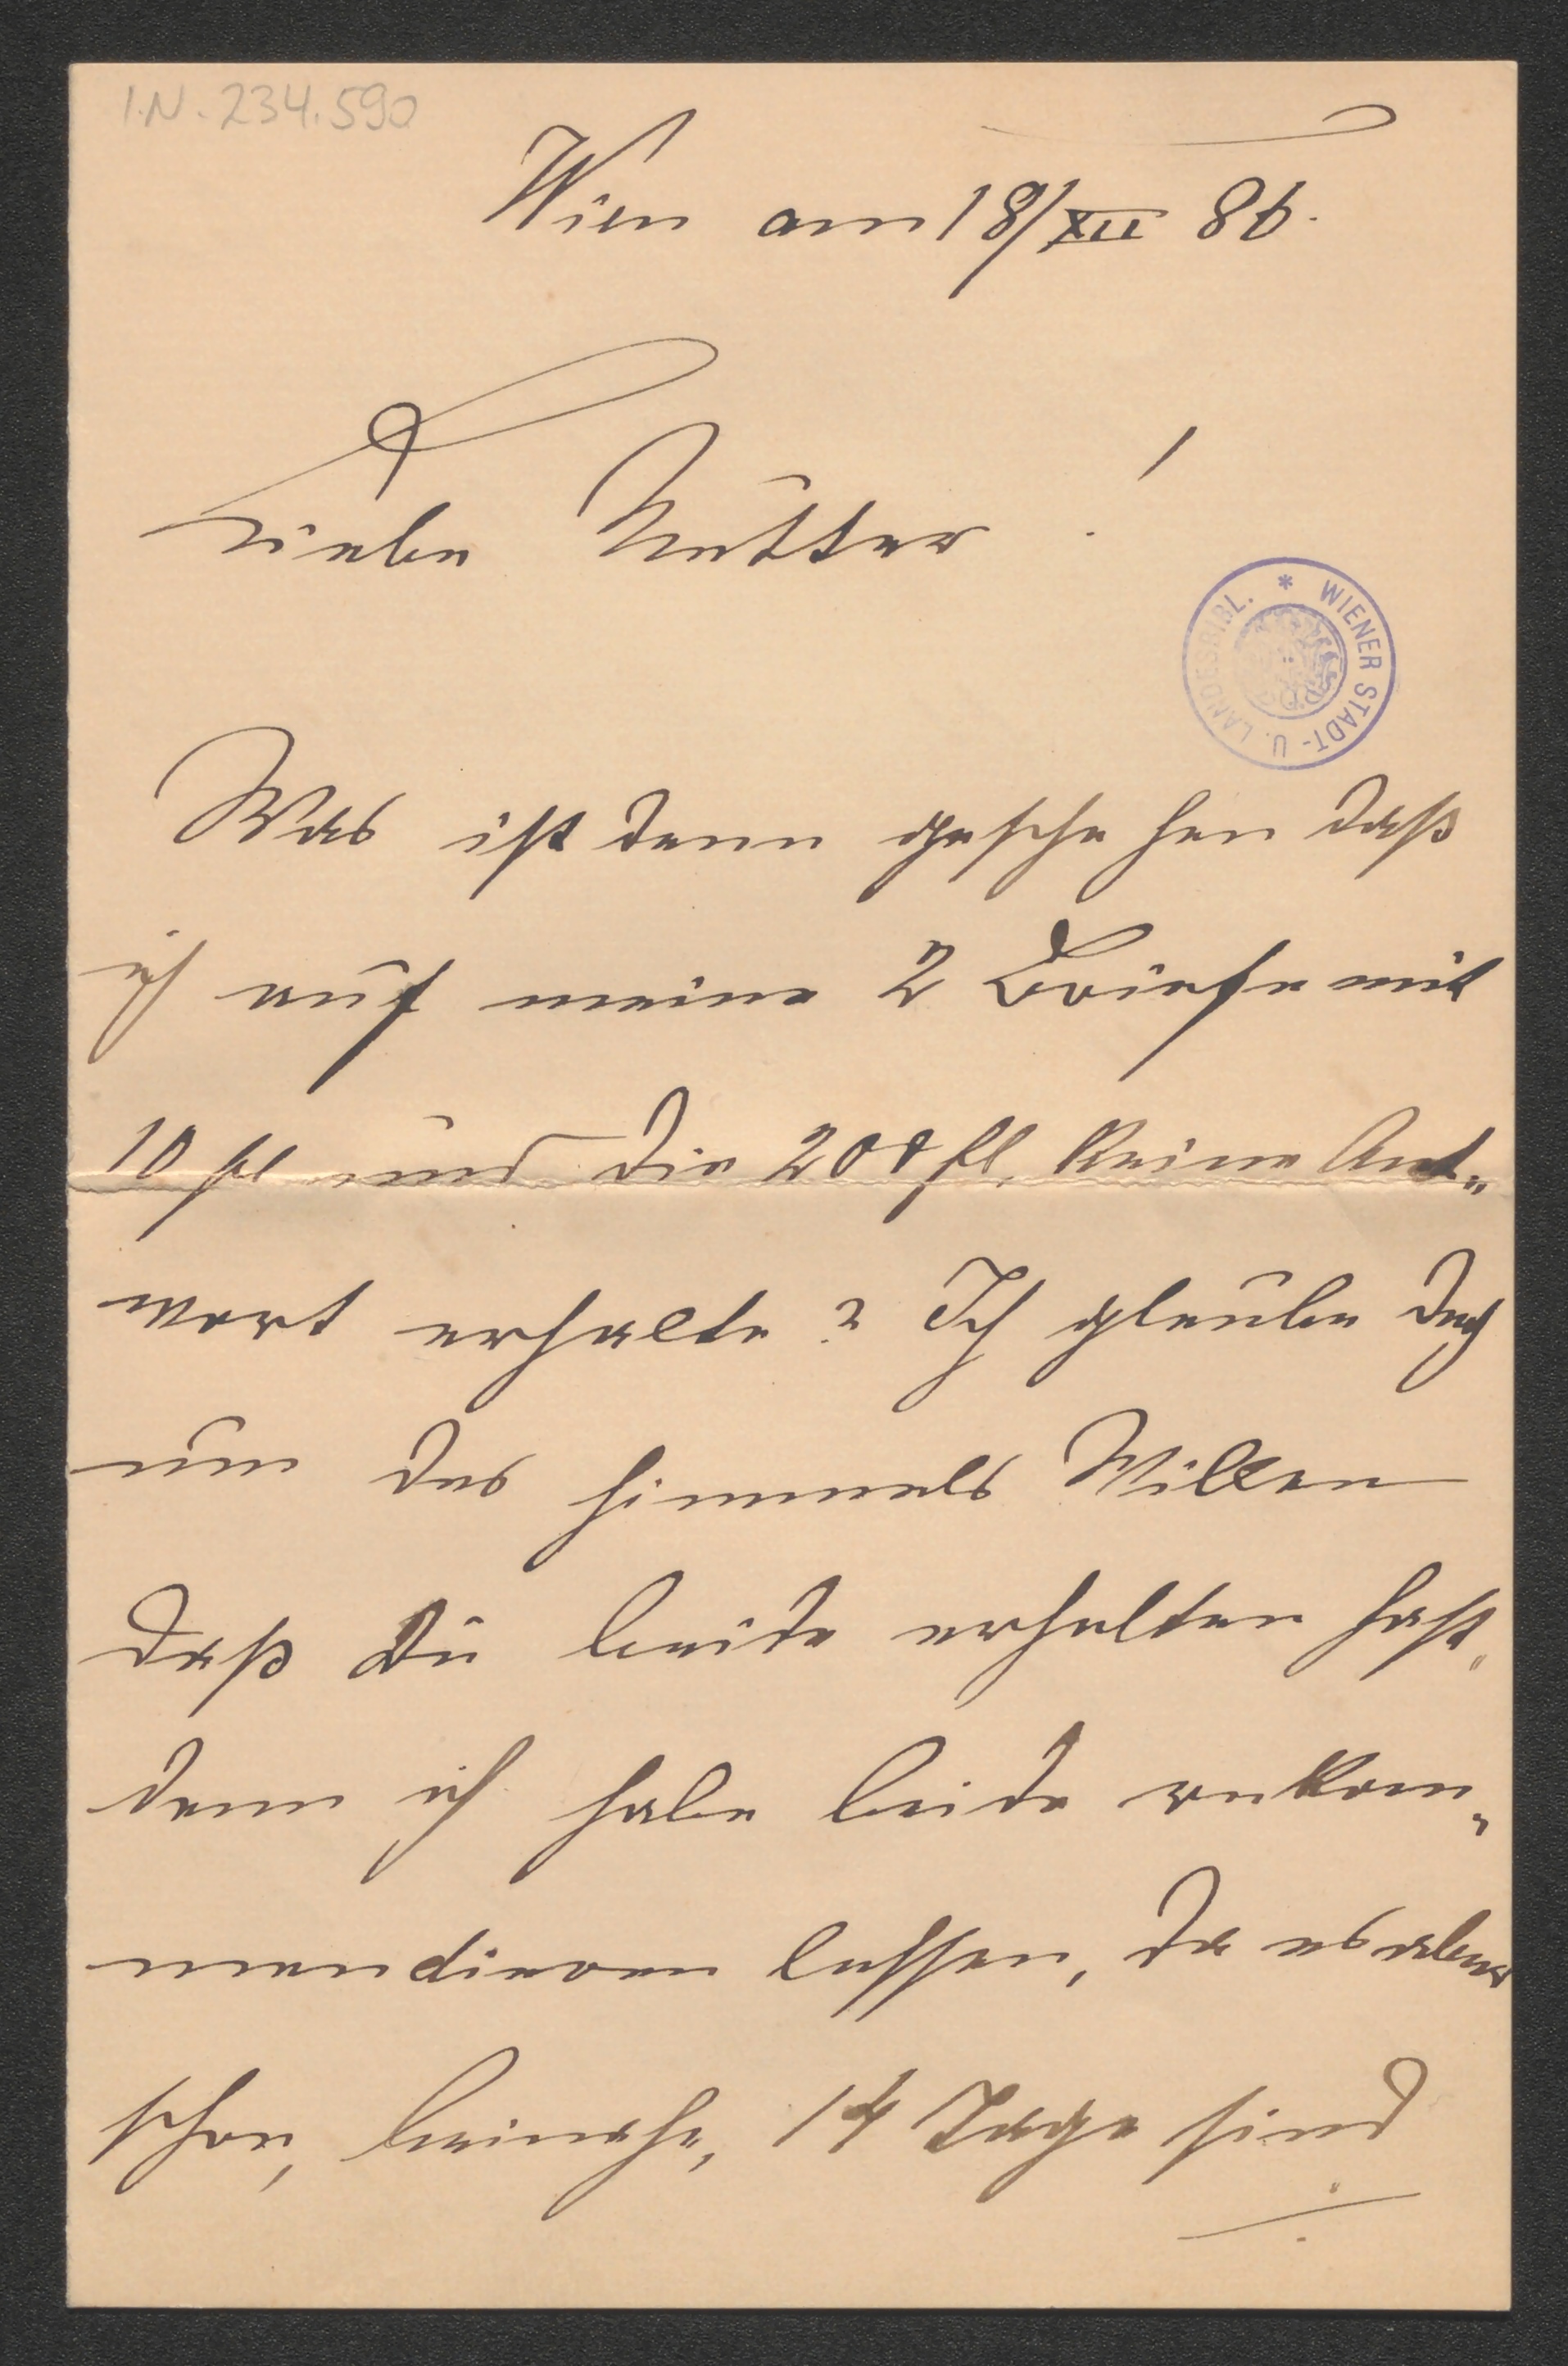 I.N. 234.590
Wien am 18/XII 86.
Liebe Mutter !
WIENER STADT- U. LANDESBIBL. *
Was ist denn geschehen daß
ich auf meine 2 Briefe mit
10 fl und die 200 fl. keine Ant„
wort erhalte? Ich glaube doch
um des himmels Willen
daß Du beide erhalten hast,
denn ich habe beide rekom„
mendieren lassen, da es aber
schon, beinahe, 14 Tage sind